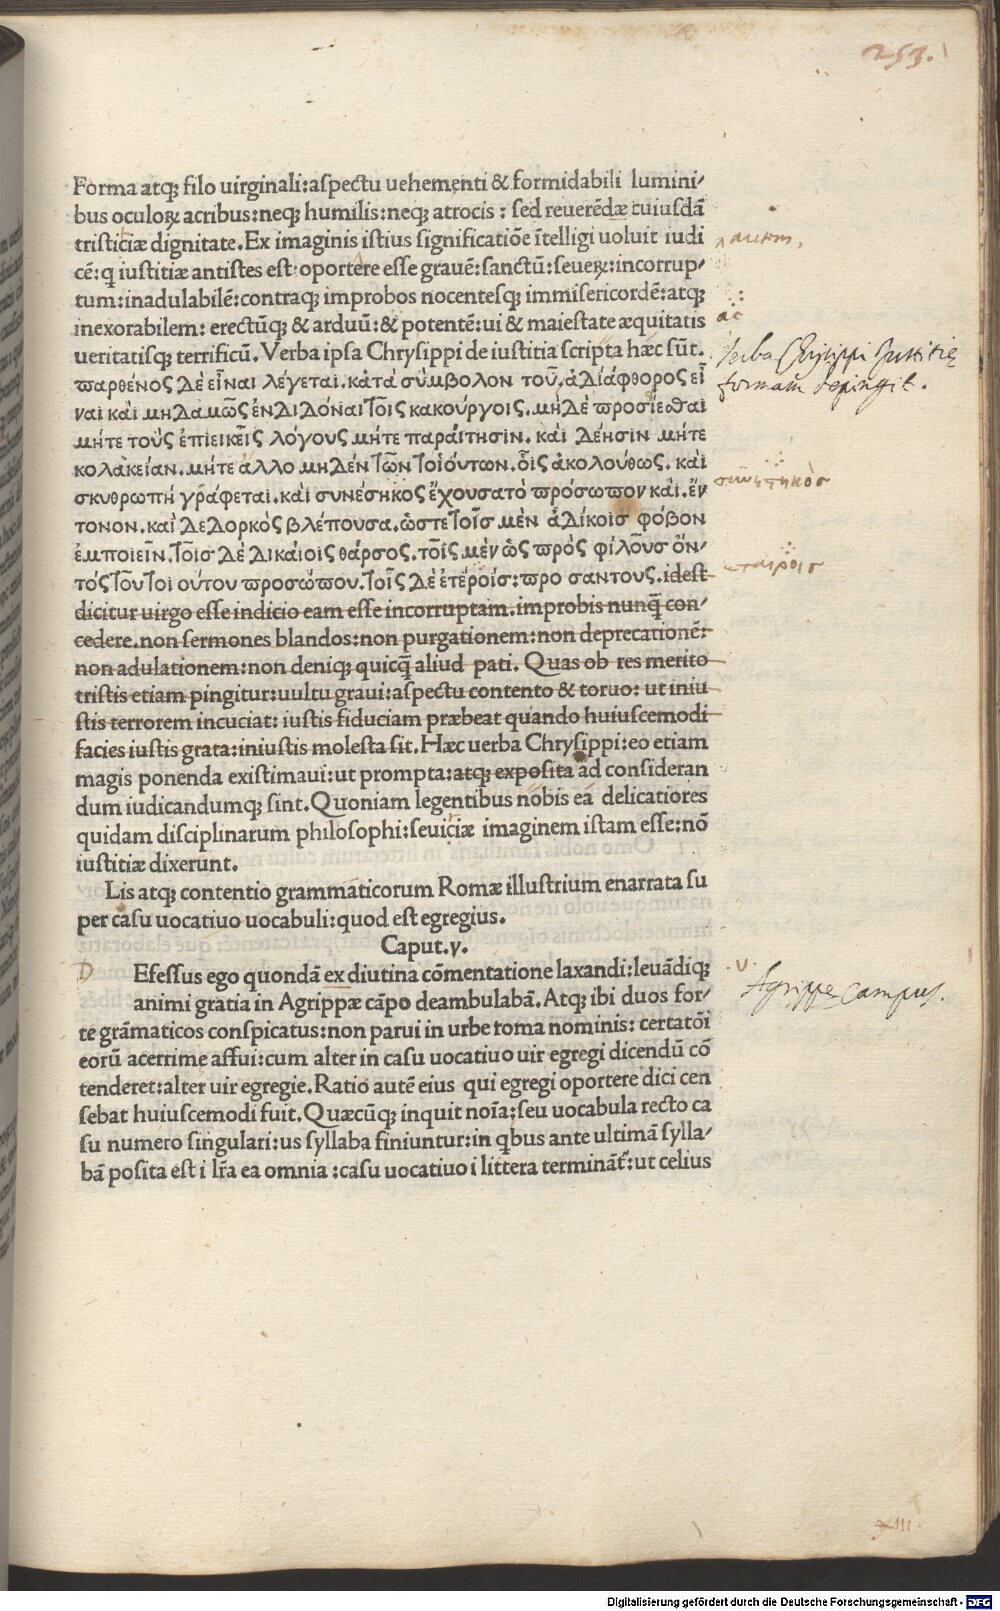 253.
Forma atq; filo uirginali:aſpectu uehementi & formidabili lumini/
bus oculoꝝ acribus:neq; humilis:neq; atrocis : ſed reuerēdæ cuiuſdā
triſticiæ dignitate.Ex imaginis iſtius ſignificatiōe ītelligi uoluit iudi
cē:q iuſtitiæ antiſtes eſt:oportere eſſe grauē:ſanctū:ſeueꝝ:incorrup/
tum:inadulabilē:contraq; improbos nocenteſq; immiſericordē:atq;
ac
inexorabilem: erectūq; & arduū:& potentē:ui & maieſtate æquitatis
ueritatiſq; terrificū.Verba ipſa Chryſippi de iuſtitia ſcripta hæc ſūt.
Verba Chrysippi Justitię
formam depingit.
ϖαρθένος Δὲ εἶναι λέγεται.κατὰ σύμβολον τοῦ.ἀΔιάφθορος εἶ
ναι καὶ μηΔαμῶς ἐνΔιΔόναι τοῖς κακούργοις.μηΔὲ ϖροσίεσθαι
μήτε τοὺς ἐπιεικεῖς λόγους μήτε παραίτησιν.καὶ Δέησιν μήτε
κολακείαν.μήτε ἄλλο μηΔέν τῶν τοιούτων.οἷς ἀκολούθως.καὶ
σκυθρωπὴ γράφεται.καὶ συνέσηκος ἔχουσα τὸ ϖρόσωϖον καὶ.ἔν
τονον.καὶ ΔεΔορκὸς βλέπουσα.ὥστε τοῖς μὲν ἀΔίκοις φόβον
ἐμποιεῖν.τοῖσ Δὲ Δικαίοις θάρσος.τοῖς μὲν ὡς ϖρὸς φίλους ὄν/
τὸς τοῦ τοι ούτου ϖροσώϖου.τοῖς Δὲ ἑτέροίς:ϖρο σαντους.ideſt
dicitur uirgo eſſe indicio eam eſſe incorruptam.improbis nunq̄ con/
cedere.non ſermones blandos:non purgationem:non deprecationē:
non adulationem:non deniq; quicq̄ aliud pati. Quas ob res merito
triſtis etiam pingitur:uultu graui:aſpectu contento & toruo: ut iniu
ſtis terrorem incuciat: iuſtis fiduciam præbeat quando huiuſcemodi
facies iuſtis grata:iniuſtis moleſta ſit.Hæc uerba Chryſippi:eo etiam
magis ponenda exiſtimaui:ut prompta:atq; expoſita ad conſideran
dum iudicandumq; ſint.Quoniam legentibus nobis ea delicatiores
quidam diſciplinarum philoſophi:ſeuiciæ imaginem iſtam eſſe:nō
iuſtitiæ dixerunt.
Lis atq; contentio grammaticorum Romæ illuſtrium enarrata ſu
per caſu uocatiuo uocabuli:quod eſt egregius.
Caput.v.
D Efeſſus ego quondā ex diutina cōmentatione laxandi:leuādiq;
v.
Agrippę campus.
animi gratia in Agrippæ cāpo deambulabā.Atq; ibi duos for/
te grāmaticos conſpicatus:non parui in urbe roma nominis: certatōi
eorū acerrime affui:cum alter in caſu uocatiuo uir egregi dicendū cō
tenderet:alter uir egregie.Ratio autē eius qui egregi oportere dici cen
ſebat huiuſcemodi fuit.Quæcūq; inquit noīa:ſeu uocabula recto ca
ſu numero ſingulari:us ſyllaba finiuntur:in qbus ante ultimā ſylla/
bā poſita eſt i lr̄a ea omnia :caſu uocatiuo i littera termināt̃:ut celius
xiii
Digitalisierung gefördert durch die Deutsche Forschungsgemeinschaft - DFG